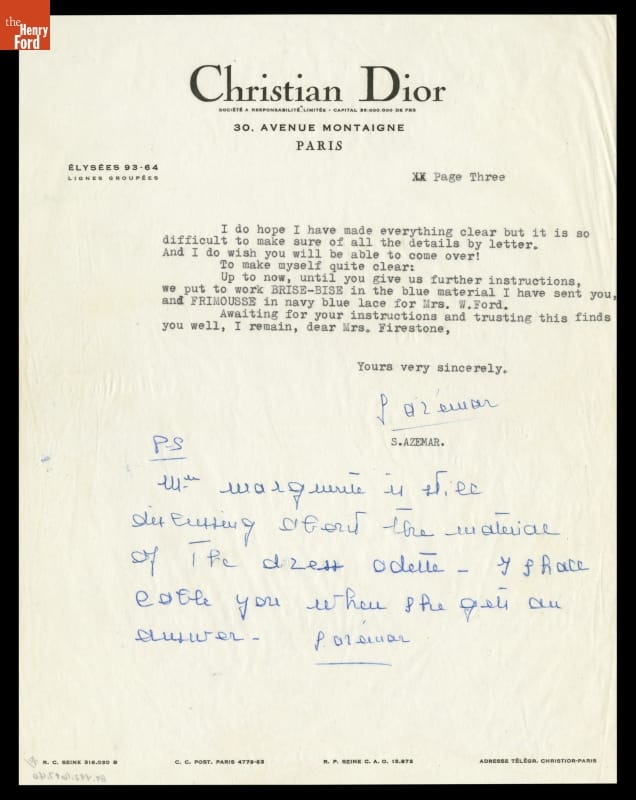 the
Henry
Ford
Christian Dior
SOCIÉTÉ A RESPONSABILITÉ LIMITÉE - CAPITAL 35.000.000 DE FRS
30, AVENUE MONTAIGNE
PARIS
ÉLYSÉES 93-64
LIGNES GROUPÉES
XX Page Three
I do hope I have made everything clear but it is so
difficult to make sure of all the details by letter.
And I do wish you will be able to come over!
To make myself quite clear:
Up to now, until you give us further instructions,
we put to work BRISE-BISE in the blue material I have sent you,
and FRIMOUSSE in navy blue lace for Mrs. W.Ford.
Awaiting for your instructions and trusting this finds
you well, I remain, dear Mrs. Firestone,
Yours very sincerely.
S azémar
S.AZEMAR.
P.S
Mme Marguerite is still
discussing about the material
of the dress Odette - I shall
cable you when she gets an
answer -
S azémar
R. C. SEINE 316.020 B
C. C. POST. PARIS 4772-63
R. P. SEINE C. A. O. 13.872
ADRESSE TÉLÉGR. CHRISTIOR-PARIS